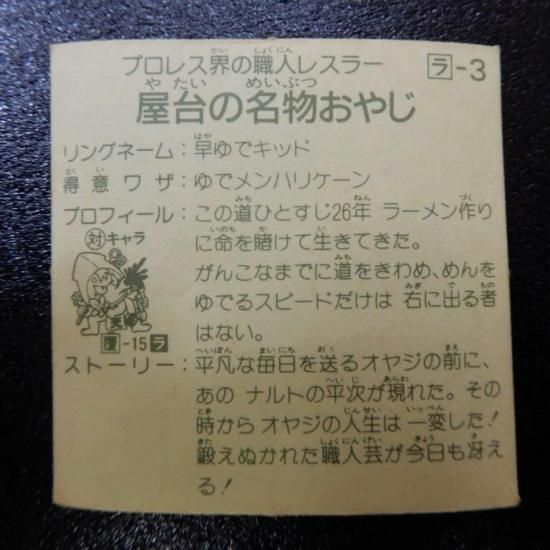 プロレス界の職人レスラー
ラ-3
屋台の名物おやじ
リングネーム：早ゆでキッド
得意ワザ：ゆでメンハリケーン
プロフィール：この道ひとすじ26年 ラーメン作り
に命を賭けて生きてきた。
がんこなまでに道をきわめ、めんを
ゆでるスピードだけは 右に出る者
はない。
対キャラ
-15ラ
ストーリー：平凡な毎日を送るオヤジの前に、
あの ナルトの平次が現れた。その
時から オヤジの人生は 一変した！
鍛えぬかれた 職人芸が今日も冴え
る！